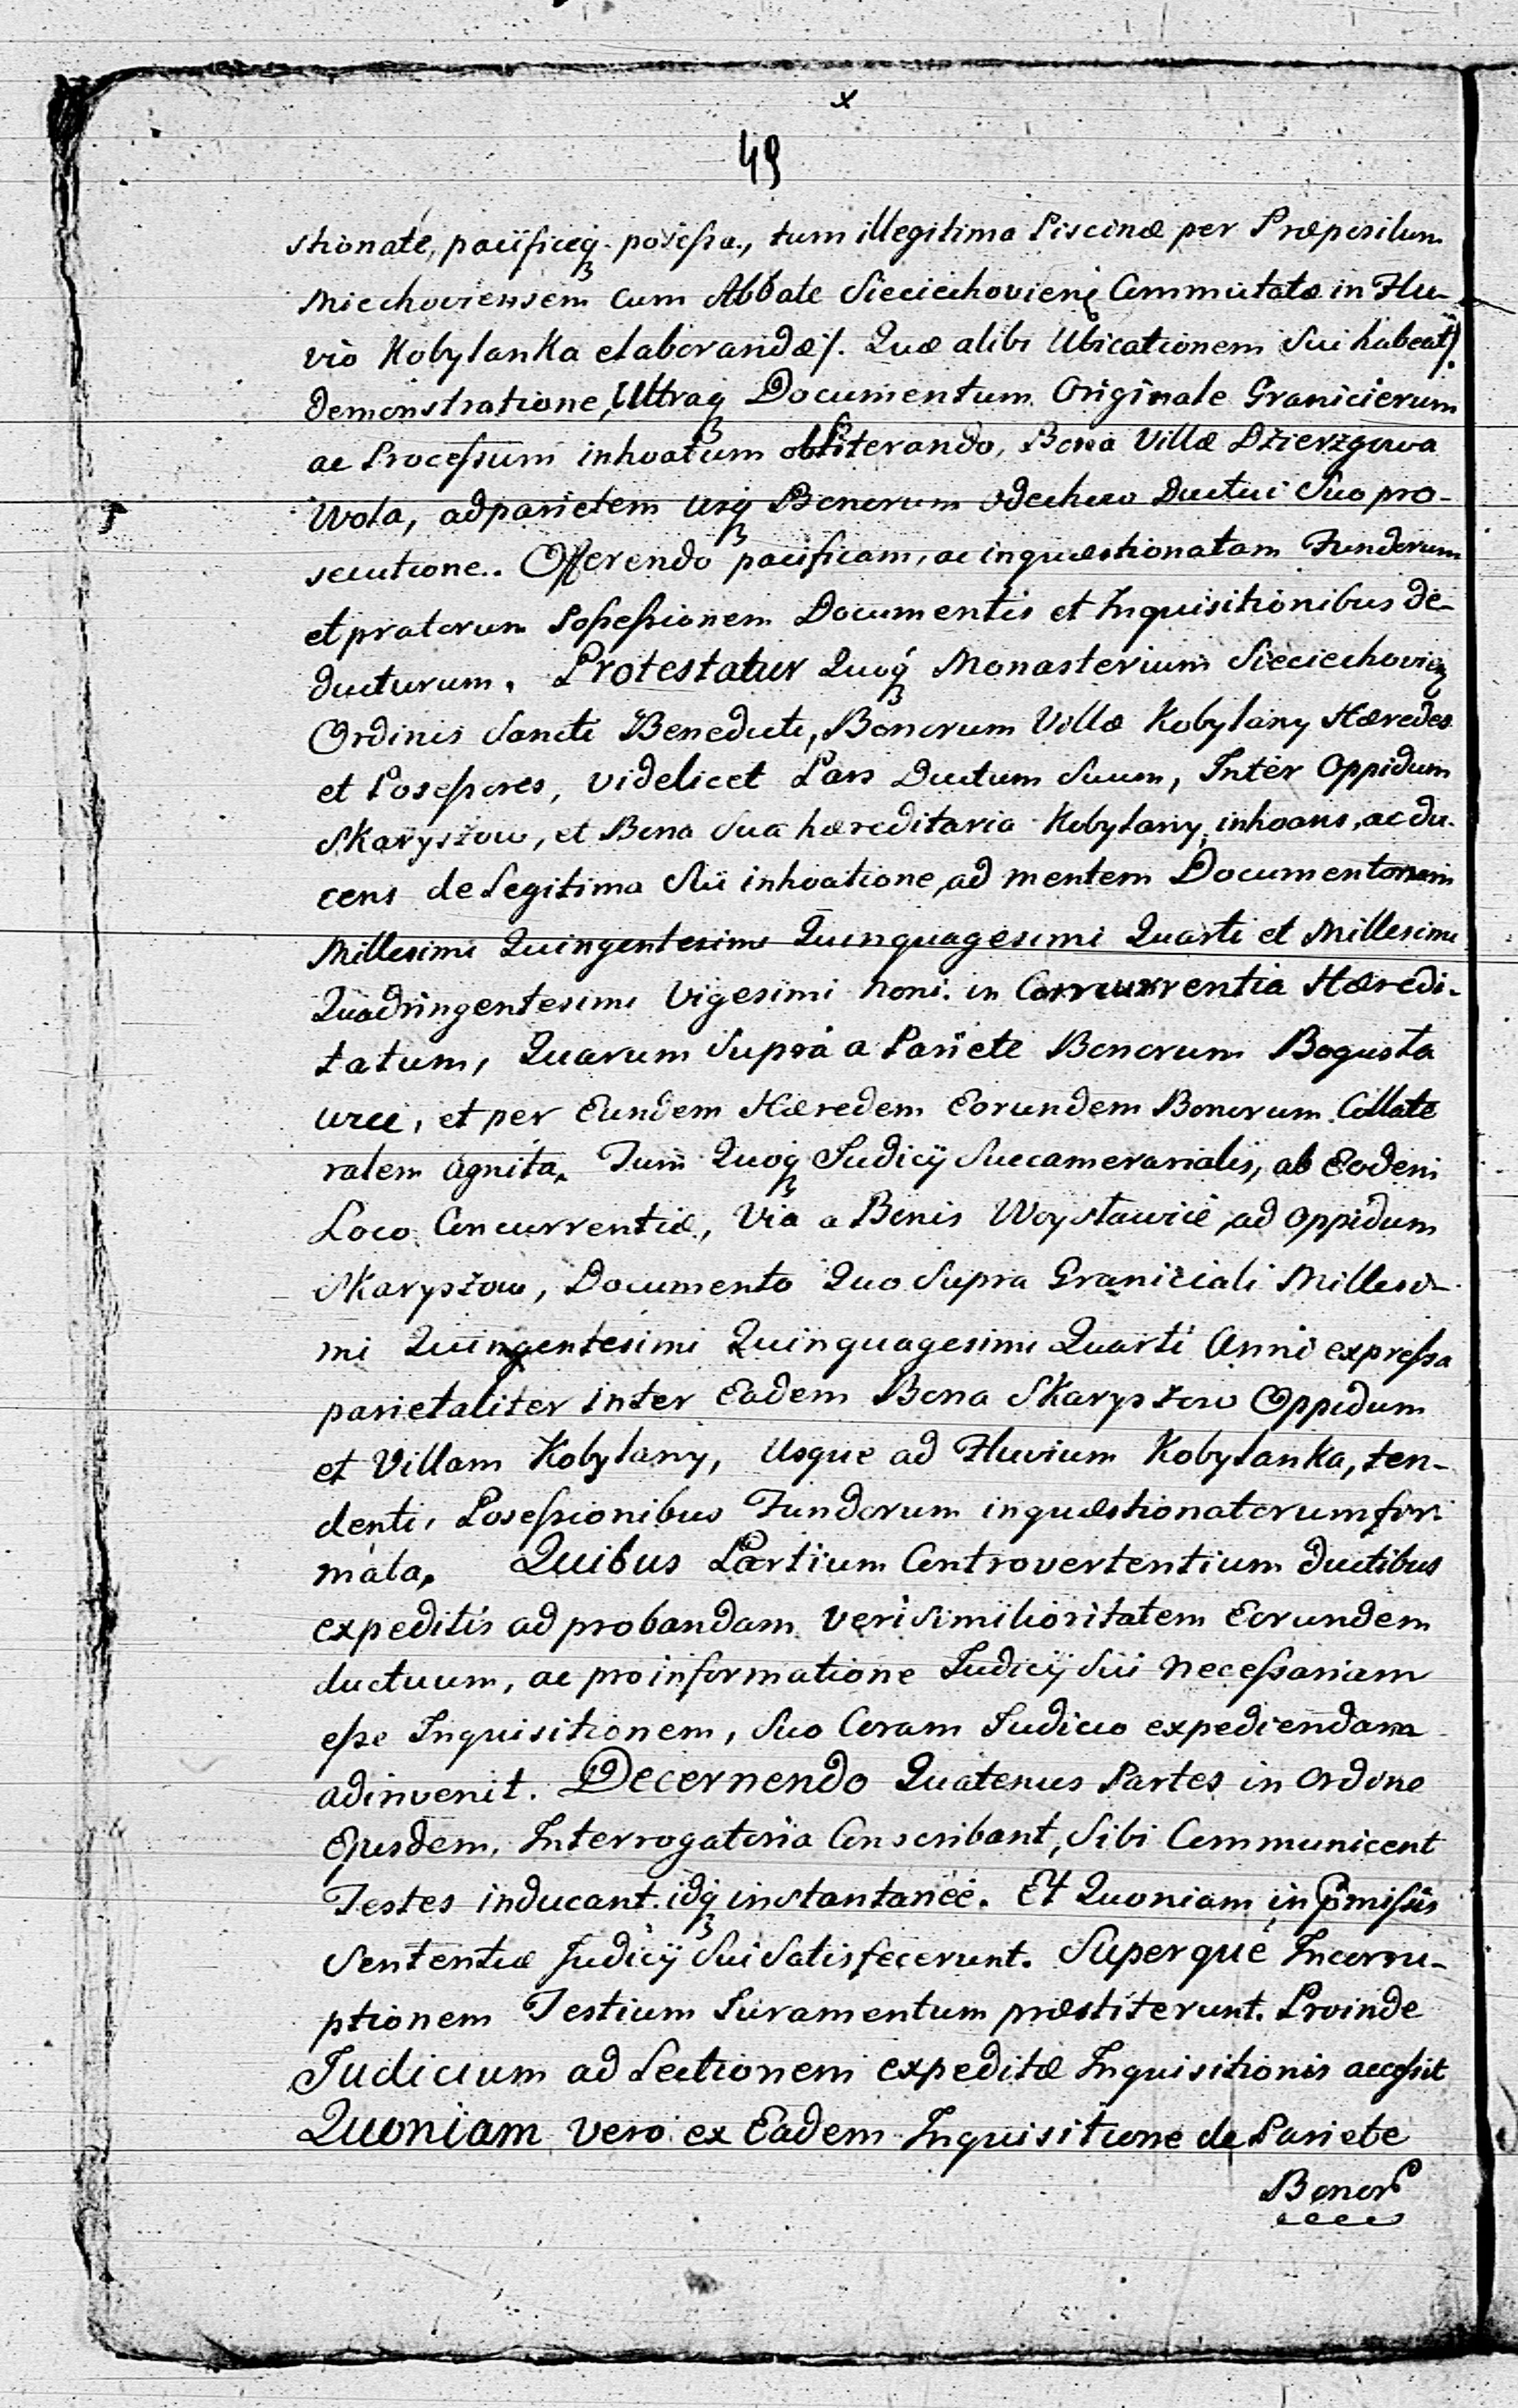 x
49
stionate, pacificeq; posseſsa., tum illegitima Piscinæ per Præpositum
Miechoviensem cum Abbate Sieciechovien; Commutatæ in Flu-
vio Kobylanka elaborandæ/. Quæ alibi Ubicationem Sui habeat/.
demonstratione, Ultraq; Documentum Originale Granicierum
ac Proceſsum inhoatum obliterando, Bona Villæ Dzierzgowa
Wola, ad parietem usq; Bonorum Odechow Ductui Suo pro-
secutione.. Offerendo pacificam, ac inquæstionatam Fundorum
et pratorum Poſseſsionem Documentis et Inquisitionibus de-
ducturum. Protestatur Quoq; Monasterium Sieciechovien;
Ordinis Sancti Benedicti, Bonorum Villæ Kobylany Hæredes
et Poseſsores, videlicet Pars Ductum Suum, Inter Oppidum
Skaryszow, et Bona Sua hæreditaria Kobylany, inhoans, ac du-
cens de Legitima Sui inhoatione, ad mentem Documentorum
Millesimi Quingentesimi Quinquagesimi Quarti et Millesimi
Quadringentesimi Vigesimi Noni. in Concurrentia Hæredi-
tatum, Quarum Supra a Pariete Bonorum Bogusła
wice, et per Eundem Hæredem Eorundem Bonorum Collate
ralem agnita. Tum Quoq; Judicij Succamerarialis, ab Eodem
Loco Concurrentiæ, Via a Bonis Woysławice ad Oppidum
Skaryszow, Documento Quo Supra Graniciali Millesi-
mi Quingentesimi Quinquagesimi Quarti Anni expreſsa
parietaliter inter Eadem Bona Skaryszow Oppidum
et Villam Kobylany, Usque ad Fluvium Kobylanka, ten-
denti, Poseſsionibus Fundorum inquæstionatorum fir-
mata. Quibus Partium Controvertentium ductibus
expeditis ad probandam verisimilioritatem Eorundem
ductuum, ac pro informatione Judicij Sui neceſsariam
eſse Inquisitionem, Suo Coram Judicio expediendam
adinvenit. Decernendo Quatenus Partes in Ordine
Ejusdem, Interrogatoria Conscribant, Sibi Communicent
Testes inducant. idq; instantaneè. Et Quoniam in pmiſsis
Sententiæ Judicij Sui Satisfecerunt. Superque Incorru-
ptionem Testium Juramentum præstiterunt. Proinde
Judicium ad Lectionem expeditæ Inquisitionis acceſsit
Quoniam vero ex Eadem Inquisitione de Pariete
Bonor